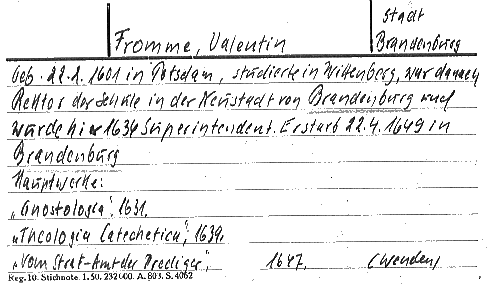 Stadt
Fromme, Valentin Brandenburg
geb. 22.2.1601 in Potsdam, studierte in Wittenberg, war danach
Rektor der Schule in der Neustadt von Brandenburg und
wurde hier 1634 Superintendent. Er starb 22.4.1649 in
Brandenburg
Hauptwerke:
"Gnostologia", 1631.
"Theologia Catechetica", 1639.
"Vom Straf-Amt der Prediger", 1647. (wenden)
Reg. 10. Stichnote. 1. 50. 232000. A. 803. S. 4062